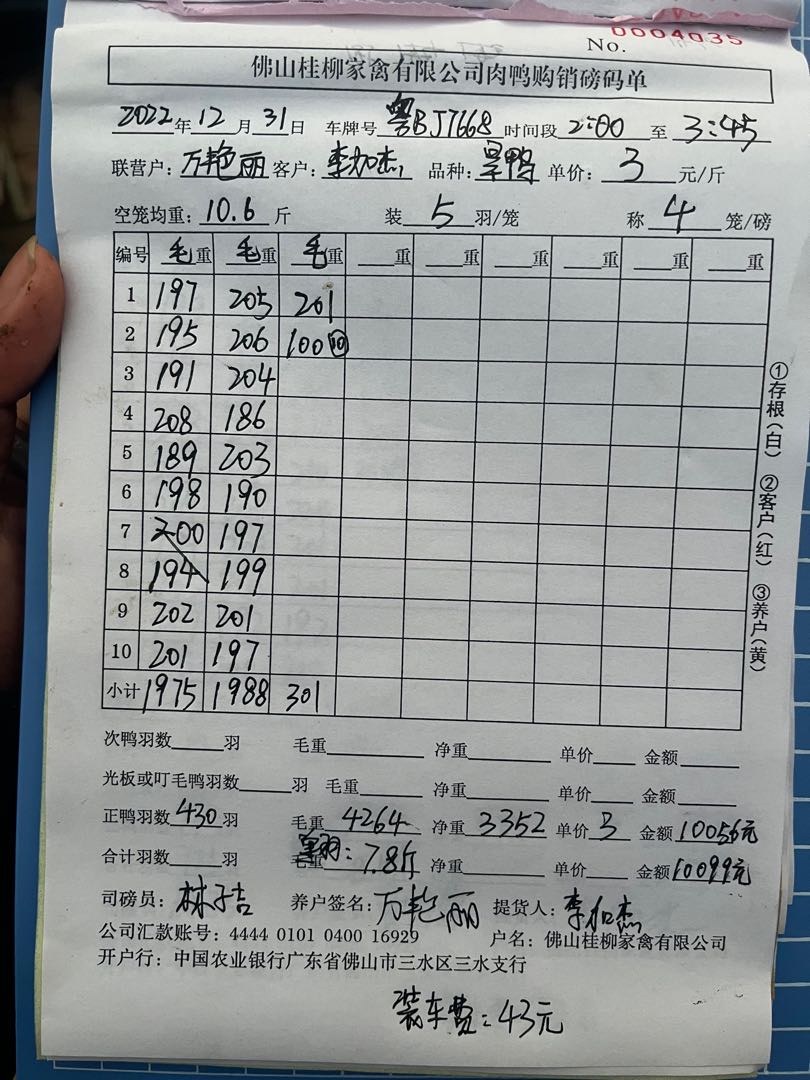 No. 0004035
佛山桂柳家禽有限公司肉鸭购销磅码单
2022年12月31日 车牌号 粤BJ7668 时间段 2:00 至 3:45
联营户:万艳丽 客户:李加杰 品种:旱鸭 单价:3元/斤
空笼均重:10.6斤 装5羽/笼 称4笼/磅
编号 毛重 毛重 毛重 重 重 重 重 重 重
1 197 205 201
2 195 206 100⑩
3 191 204
4 208 186
5 189 203
6 198 190
7 200 197
8 194 199
9 202 201
10 201 197
小计 1975 1988 301
①存根(白) ②客户(红) ③养户(黄)
次鸭羽数 羽 毛重 净重 单价 金额
光板或叮毛鸭羽数 羽 毛重 净重 单价 金额
正鸭羽数430羽 毛重4264 净重3352 单价3 金额10056元
合计羽数 羽 毛重 单羽:7.8斤 净重 单价 金额10099元
司磅员:林子吉 养户签名:万艳丽 提货人:李加杰
公司汇款账号:4444 0101 0400 16929 户名:佛山桂柳家禽有限公司
开户行:中国农业银行广东省佛山市三水区三水支行
装车费:43元